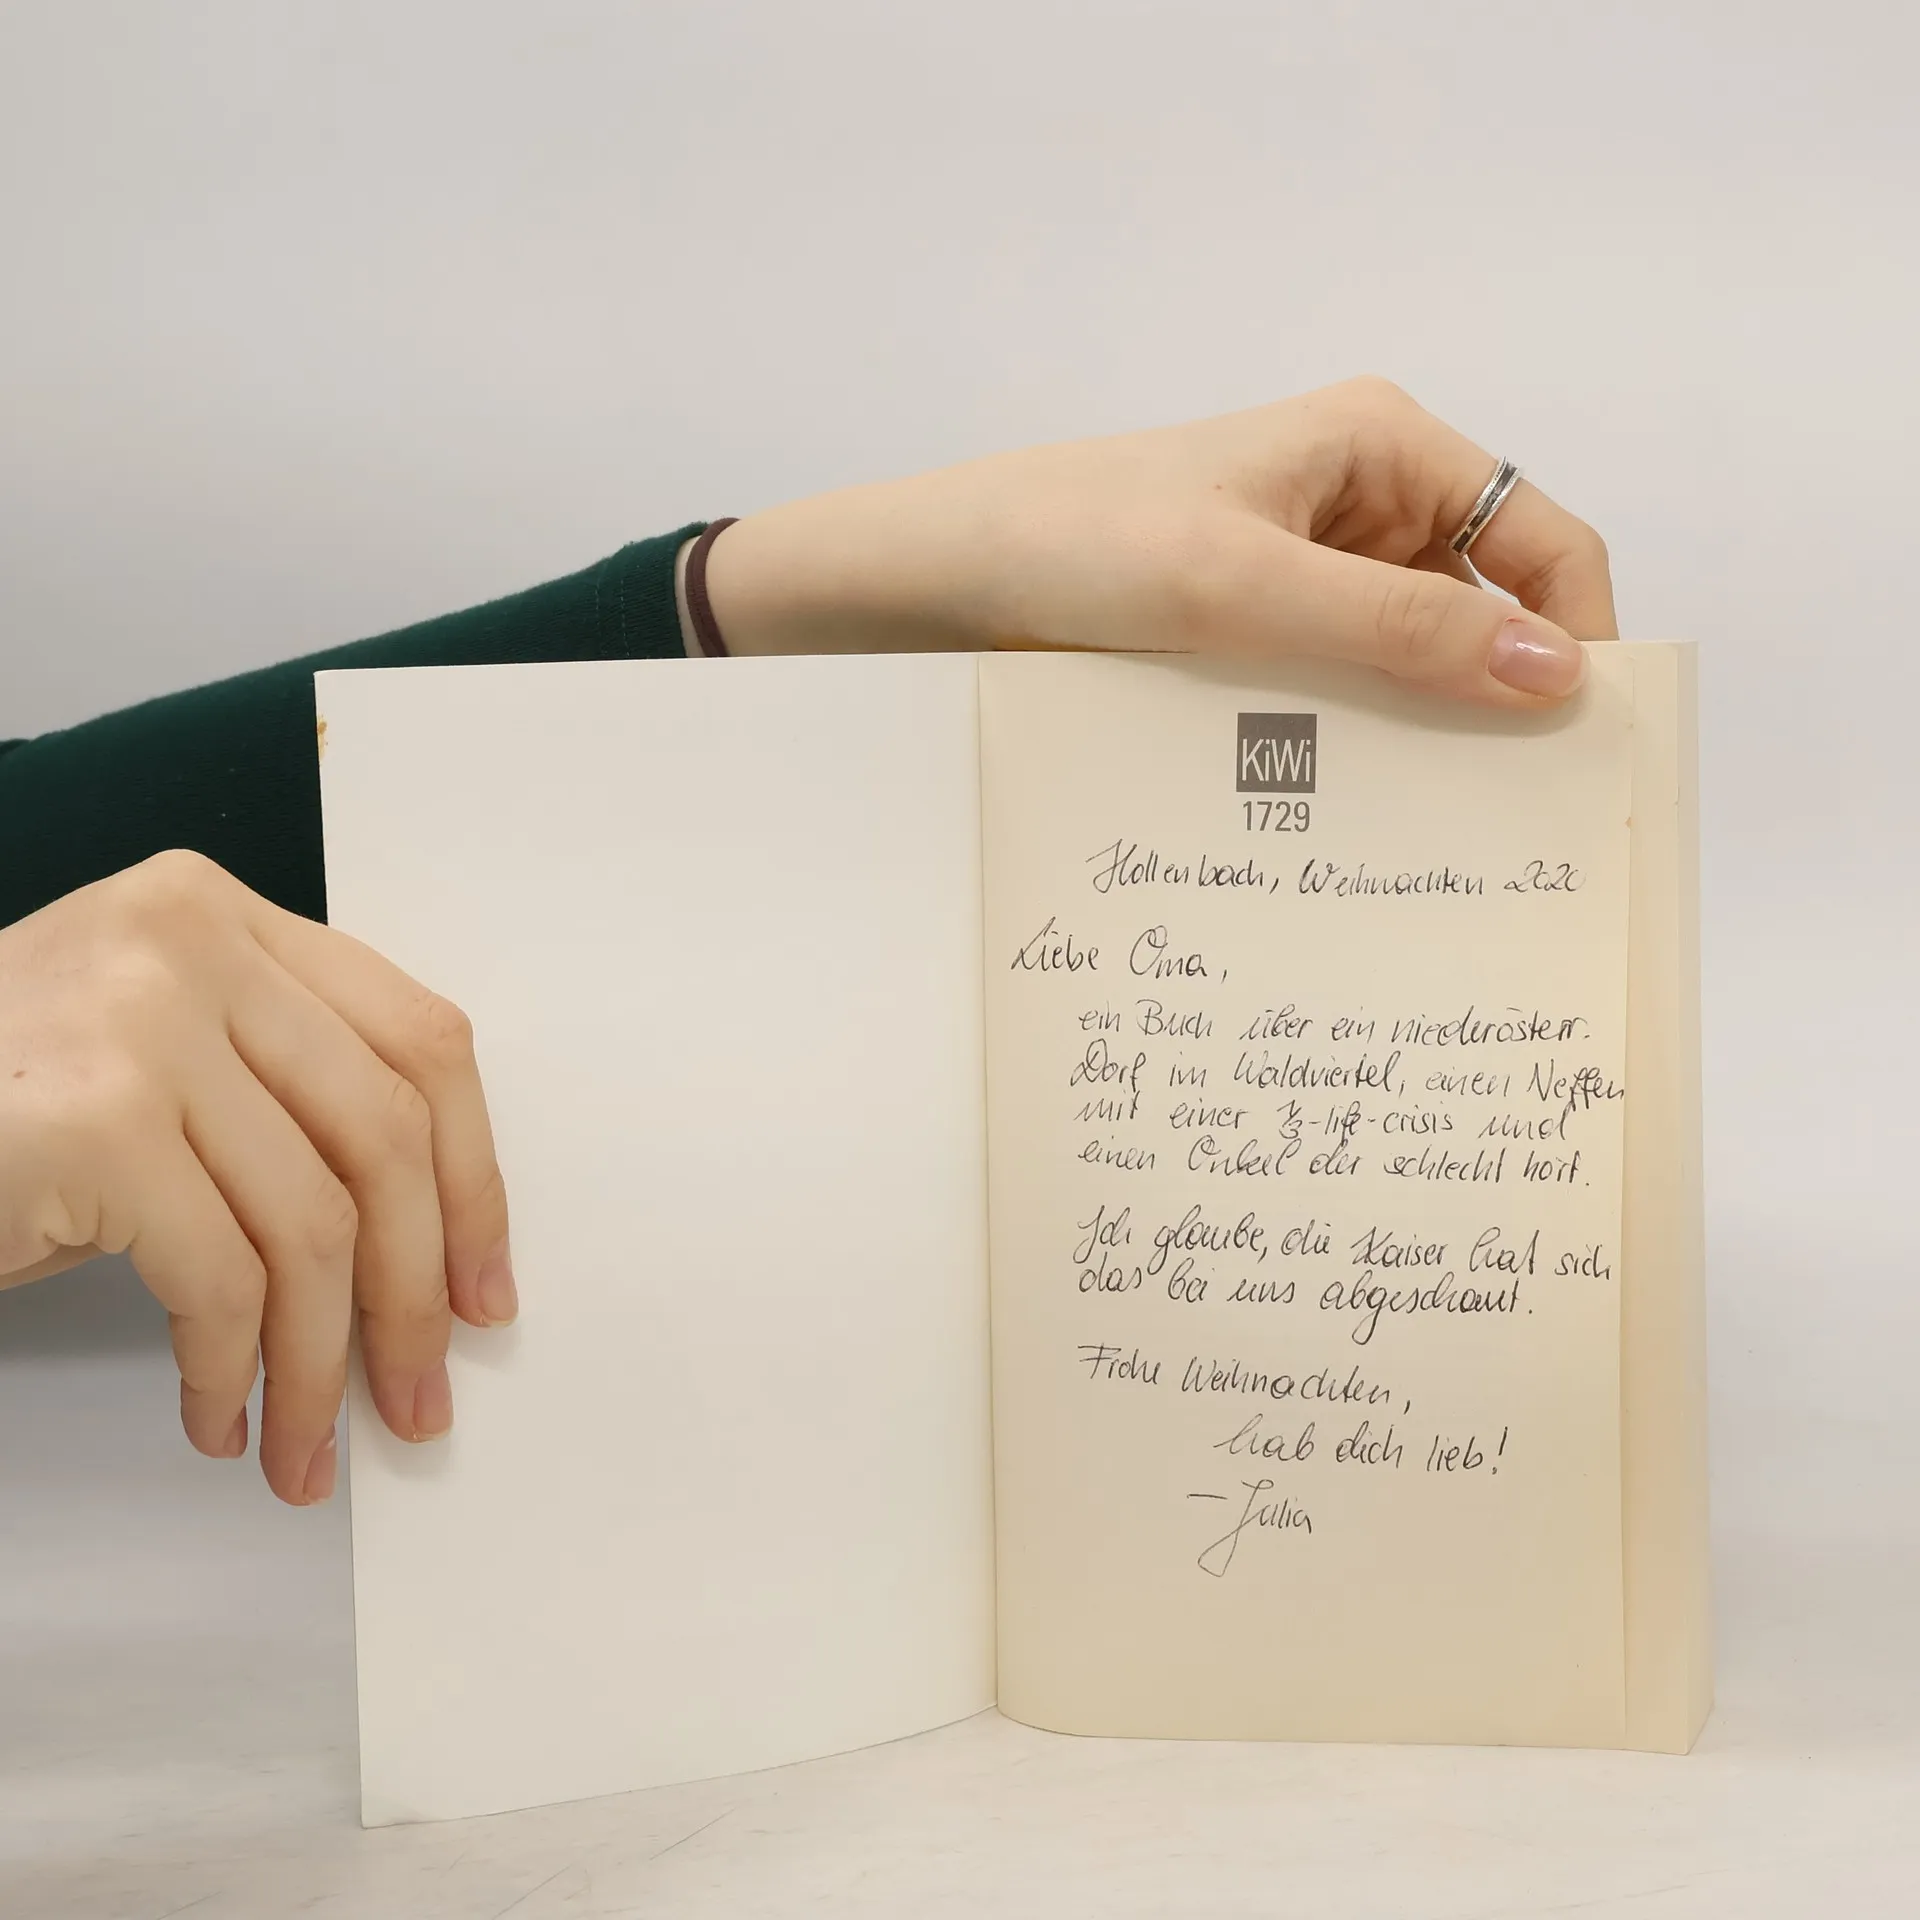 KiWi
1729
Hollenbach, Weihnachten 2020
Liebe Oma,
ein Buch über ein niederösterr.
Dorf im Waldviertel, einen Neffen
mit einer ⅓-life-crisis und
einen Onkel der schlecht hört.
Ich glaube, die Kaiser hat sich
das bei uns abgeschaut.
Frohe Weihnachten,
hab dich lieb!
– Julia